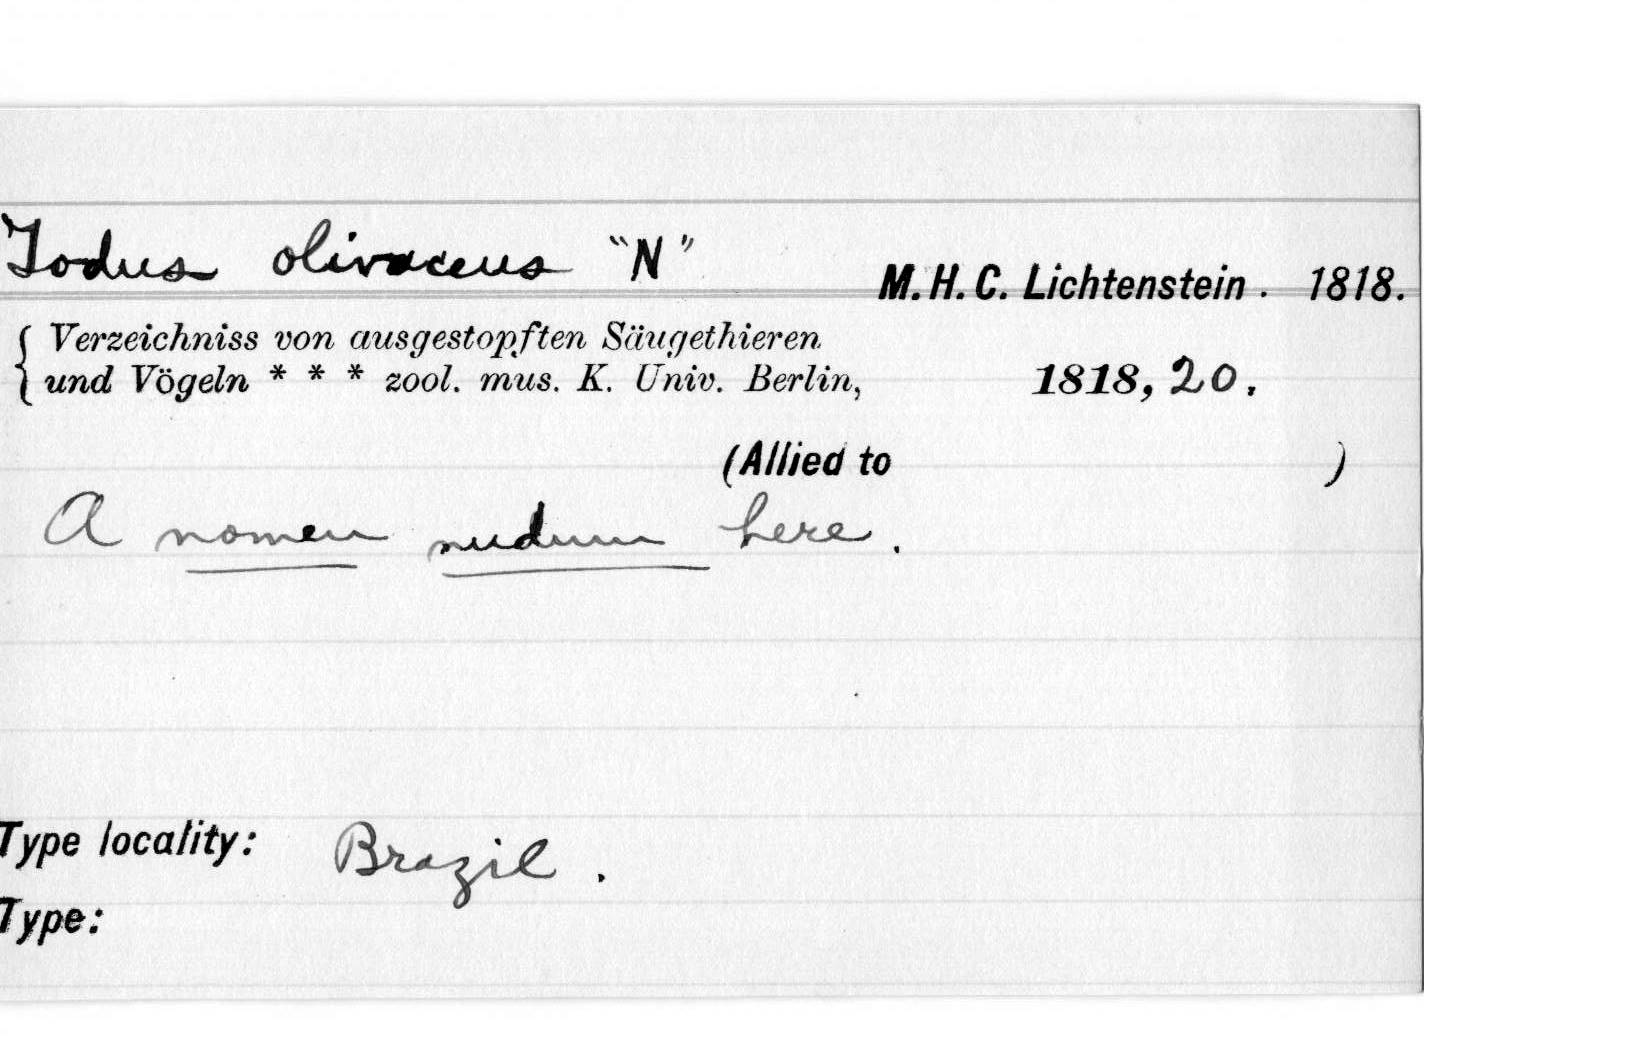 Todus olivaceus "N"
M. H. C. Lichtenstein. 1818.
{ Verzeichniss von ausgestopften Säugethieren
und Vögeln * * * zool. mus. K. Univ. Berlin, 1818, 20.
(Allied to )
A nomen nudum here.
Type locality: Brazil.
Type: